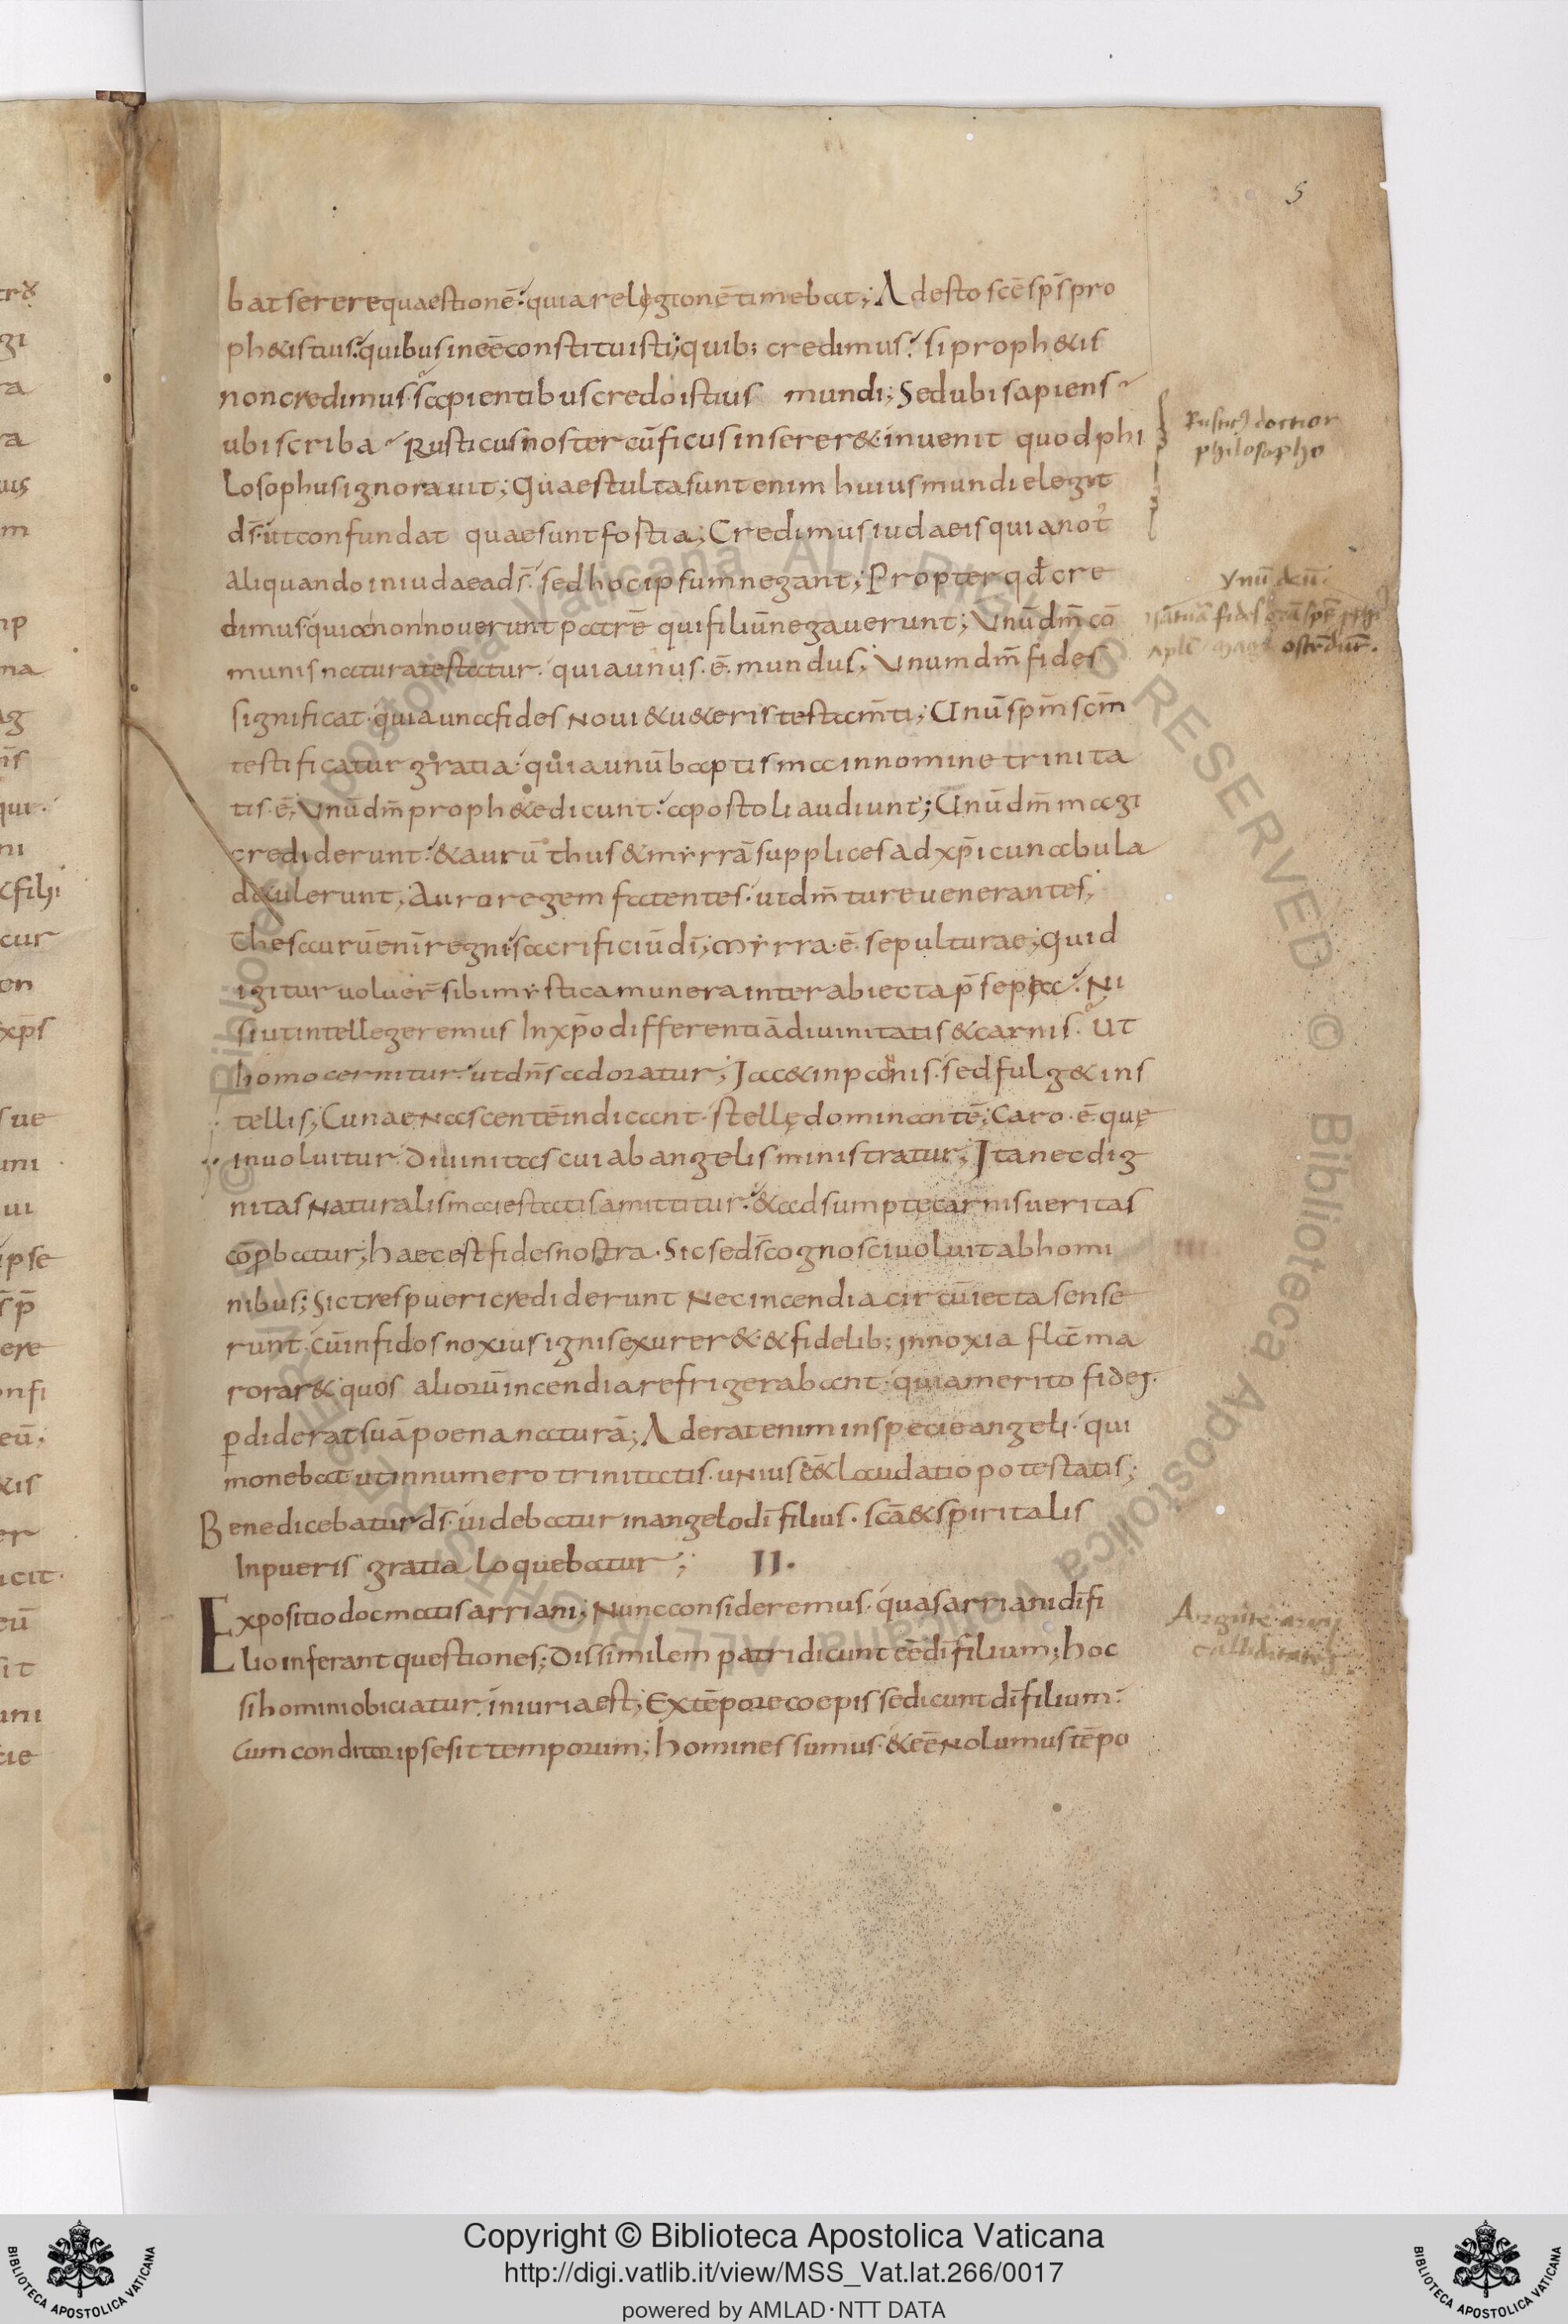 5
bat serere quaestionē: quia religionē timebat; Adesto scē sp̄s pro
ph&is tuis. quibus ineē constituisti; quib; credimus. si proph&is
non credimus. sapientibus credo istius mundi; Sed ubi sapiens
ubi scriba Rusticus noster cū ficus inserer&. invenit quod phi
losophus ignoravit; Quae stulta sunt enim huius mundi elegit
ds̄. ut confundat quae sunt fostia; Credimus iudaeis quia not̄
aliquando in iudaea ds̄. sed hoc ipsum negant; Propter qđ cre
dimus quia non noverunt patrē qui filiū negaverunt; Unū dm̄ cō
munis natura testatur. quia unus .ē. mundus; Unum dm̄ fides
significat. quia una fides Novi &u&eris testam̄ti; Unū spm̄ scm̄
testificatur gratia. quia unū baptisma in nomine trinita
tis .ē; Unū dm̄ proph&ę dicunt: apostoli audiunt; Unū dm̄ magi
crediderunt. & aurū thus & myrrā supplices ad xp̄i cunabula
d&ulerunt; Auro regem fatentes. ut dm̄ ture venerantes;
Thesaurū enī regni. sacrificiū dī; myrra .ē. sepulturae; Quid
igitur voluer̄ sibi mystica munera inter abiecta p̄sepia. Ni
si ut intellegeremus In xp̄o differentiā divinitatis & carnis. Ut
homo cernitur. ut dn̄s adoratur; Iac& in pannis. sed fulg& in s
tellis; Cunae Nascentē indicant. stellę dominantē; Caro .ē. quę
involvitur. Divinitas cui ab angelis ministratur; Ita nec dig
nitas Naturalis maiestatis amittitur. & adsumptę carnis veritas
cōp̱batur; haec est fides nostra. Sic se ds̄ cognosci voluit ab homi
nibus; Sic tres pueri crediderunt Nec incendia circūiecta sense
runt. cū infidos noxius ignis exurer&. & fidelib; innoxia flāma
rorar& quos aliorū incendia refrigerabant. quia merito fidei.
p̱diderat suā poena naturā; Aderat enim in specie angeli. qui
monebat ut in numero trinitatis. uNius ēē& laudatio potestatis;
Benedicebatur ds̄. videbatur in angelo dī filius. scā & spiritalis
In pueris gratia loquebatur; II.
Expositio docmatis arriani; Nunc consideremus. quas arriani dī fi
lio inferant questiones; Dissimilem patri dicunt eē dī filium; hoc
si homini obiciatur. iniuria est; Ex tēpore coepisse dicunt dī filium.
Cum conditor ipse sit temporum; homines sumus. & eē Nolumus tēpo
Rustic9 doctior
philosopho
Ynū deū.
Copyright © Biblioteca Apostolica Vaticana
http://digi.vatlib.it/view/MSS_Vat.lat.266/0017
powered by AMLAD·NTT DATA
BIBLIOTECA APOSTOLICA VATICANA
BIBLIOTECA APOSTOLICA VATICANA